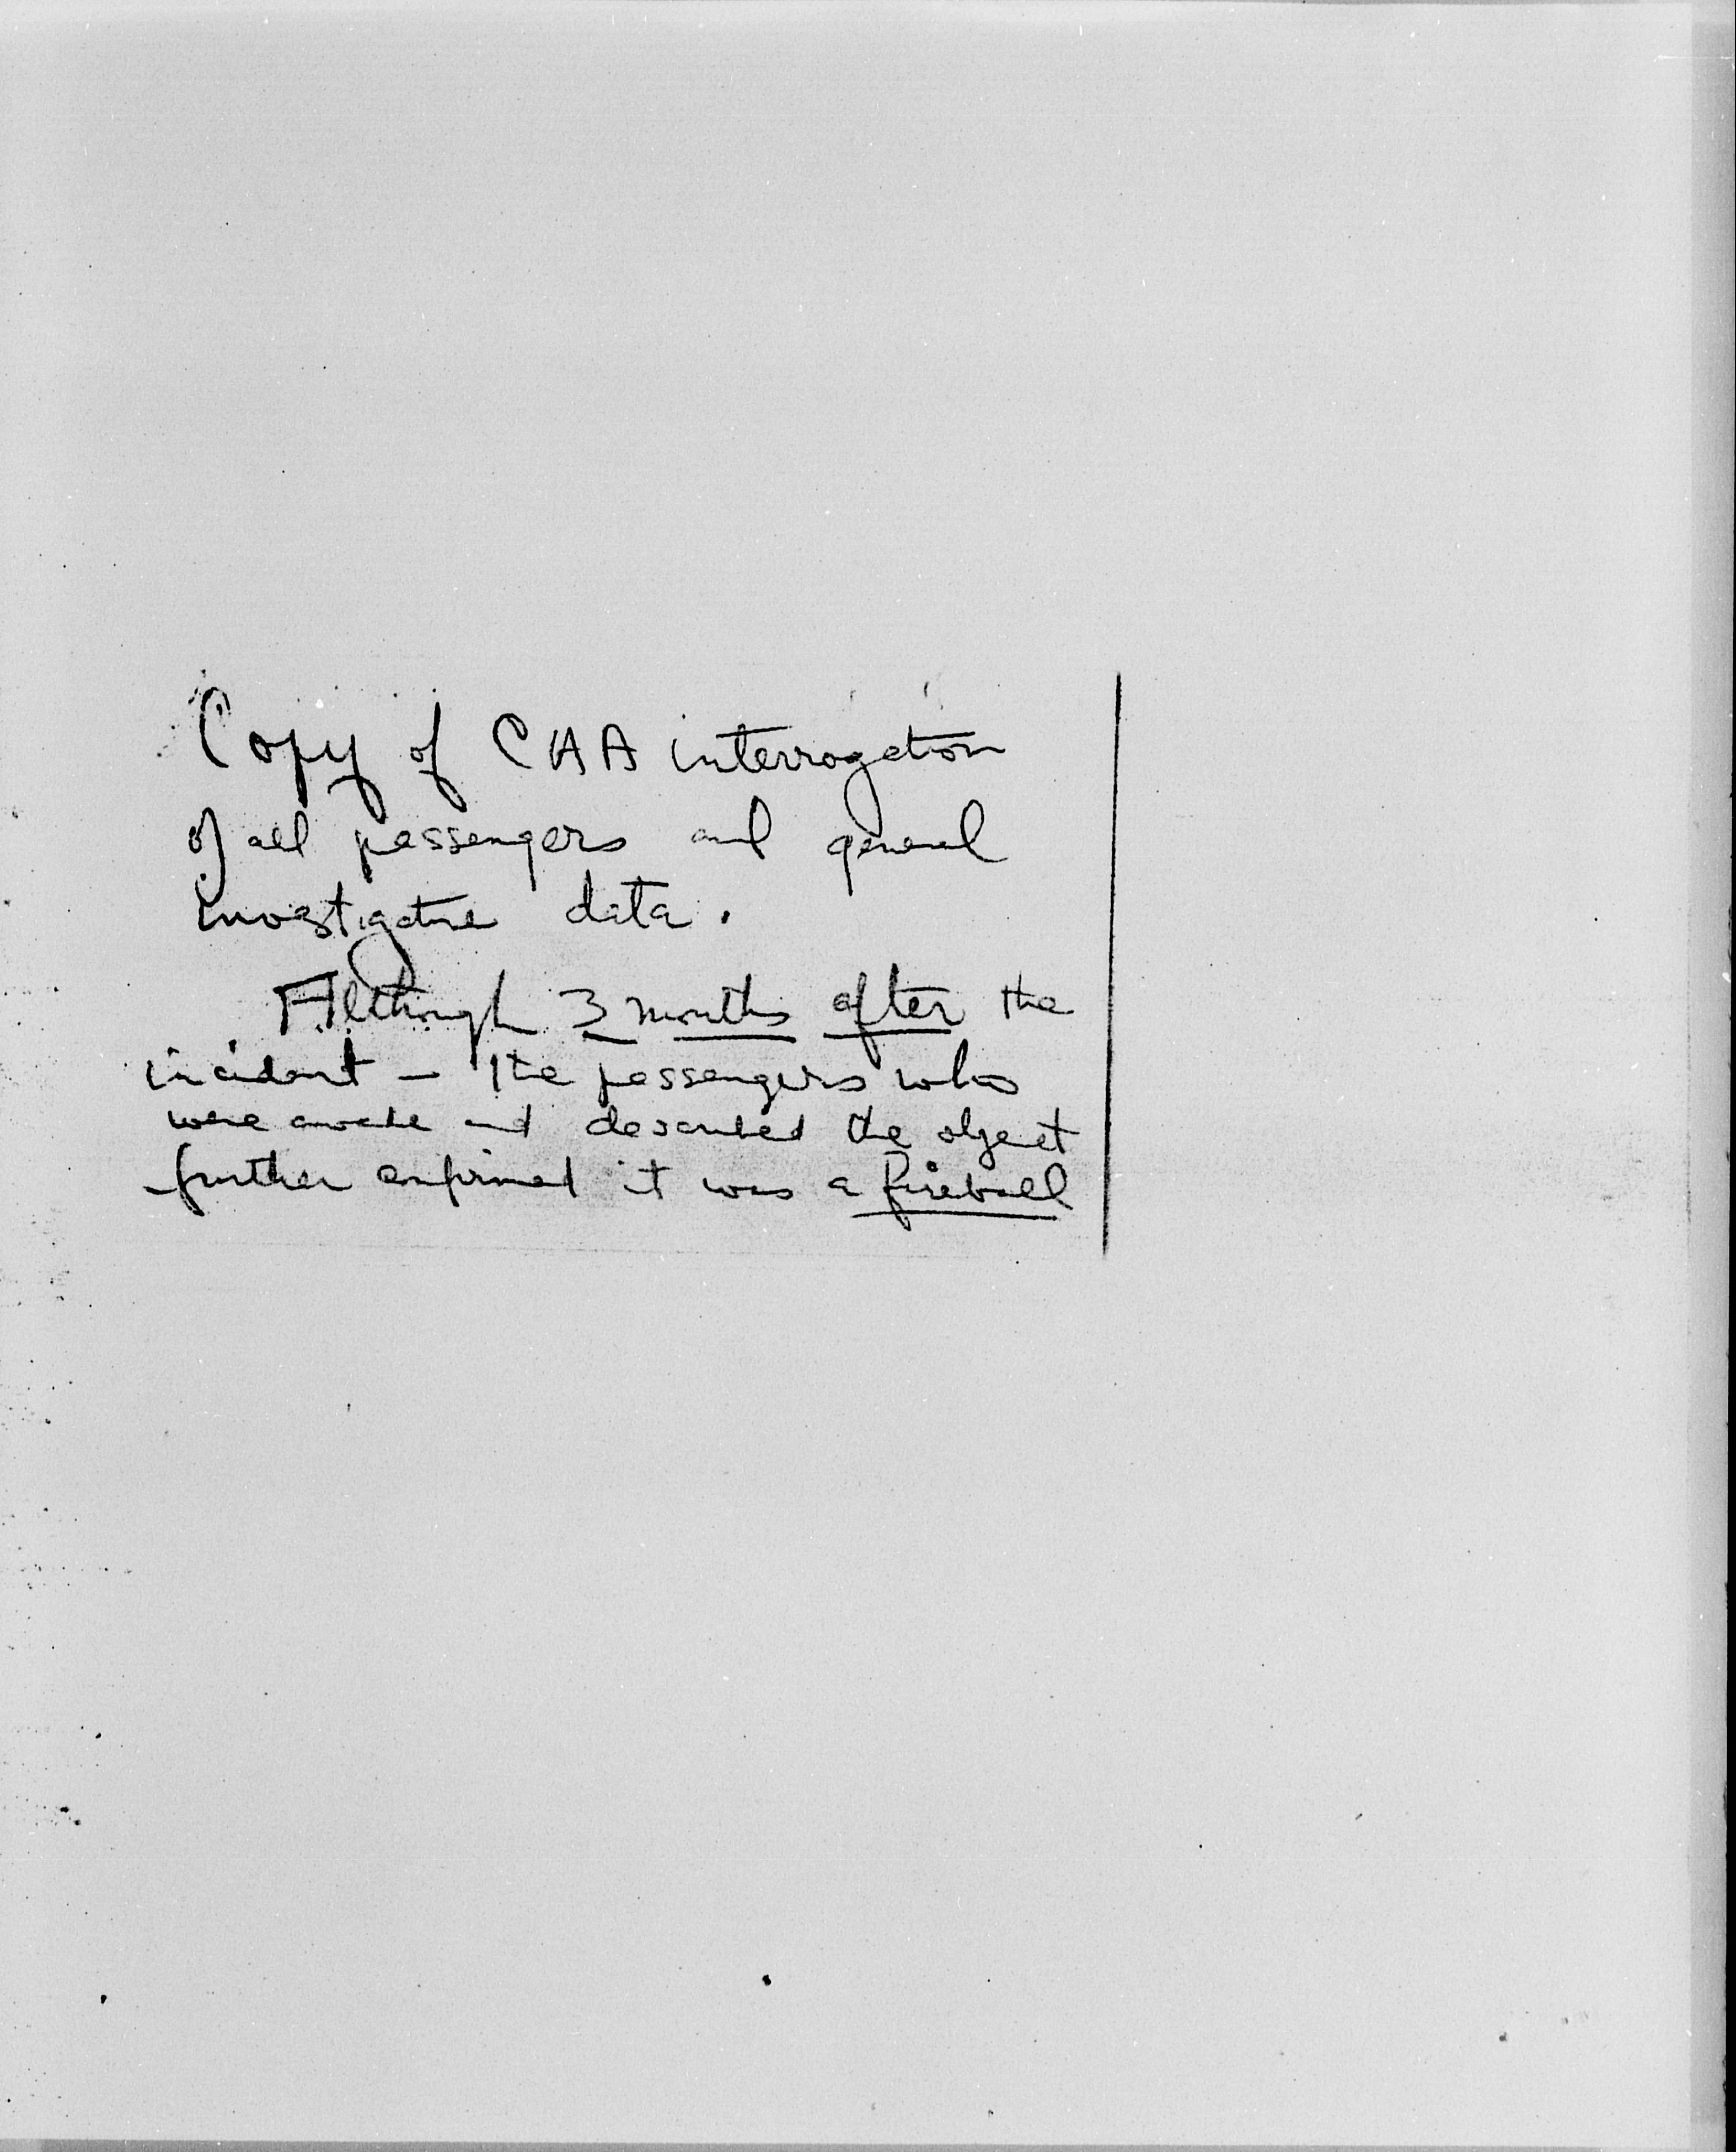 Copy of CAA interrogation
of all passengers and general
investigative data.
Although 3 months after the
incident — the passengers who
were awake and described the object
further confirmed it was a fireball